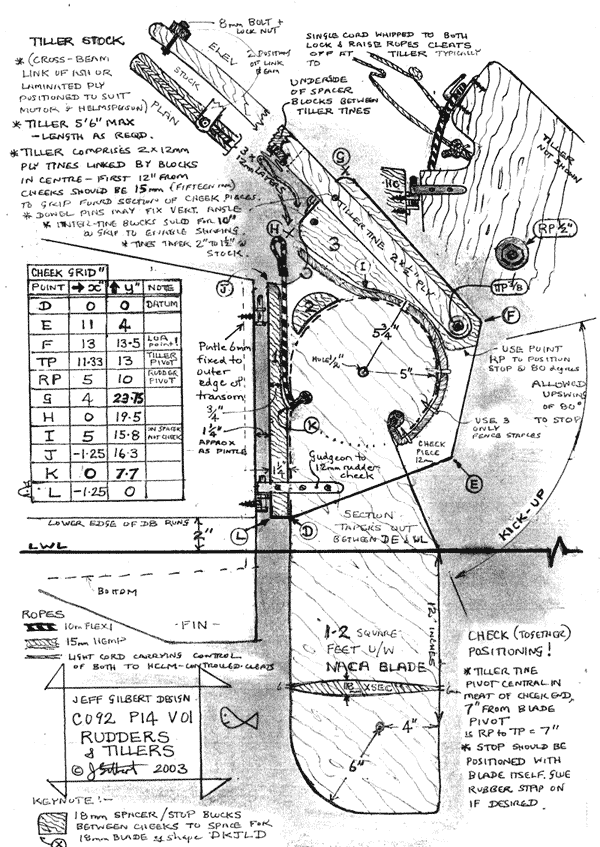 8mm BOLT +
LOCK NUT
TILLER STOCK
* (CROSS-BEAM
LINK OF 
LAMINATED PLY
POSITIONED TO SUIT
MOTOR & HELMSPERSON)
* TILLER 5'6" MAX
- LENGTH AS REQD.
* TILLER COMPRISES 2 X 12mm
PLY TINES LINKED BY BLOCKS
IN CENTRE - FIRST 12" FROM
CHEEKS SHOULD BE 15mm (FIFTEEN mm)
TO GRIP FORWD SECTION OF CHEEK PIECES.
* DOWEL PINS MAY FIX VERT. ANGLE
BLOCKS FOR 10"
TO ENABLE
* TINES TAPER 2" TO 1½"
STOCK.
ELEV
STOCK
PLAN
2 POSITIONS
OF LINK
BEAM
SINGLE CORD WHIPPED TO BOTH
LOCK & RAISE ROPES CLEATS
OFF AT TILLER TYPICALLY
TO
UNDERSIDE
OF SPACER
BLOCKS BETWEEN
TILLER TINES
TILLER
NOT SHOWN
HO
RP ½"
TP 3/8
G
TILLER TINE 2 X ½" PLY
3
H
I
J
F
5¾"
5"
K
USE POINT
RP TO POSITION
STOP @ 80 degrees
ALLOWED
UPSWING
OF 80°
TO STOP
USE 3
ONLY
FENCE STAPLES
CHECK
PIECE
12mm
E
KICK-UP
CHEEK GRID"
POINT → X" ↑ Y" NOTE
D 0 0 DATUM
E 11 4
F 13 13.5
TP 11.33 13 TILLER PIVOT
RP 5 10 RUDDER PIVOT
G 4 23.75
H 0 19.5
I 5 15.8
J -1.25 16.3
K 0 7.7
L -1.25 0
Pintle 6mm
fixed to
outer
edge of
transom
¾"
1¼"
APPROX
AS PINTLE
1¼"
Gudgeon to
12mm rudder
cheek
LOWER EDGE OF DB RUNS
2"
L
D
SECTION
TAPERS OUT
BETWEEN DE & LWL
LWL
BOTTOM
- FIN -
12 INCHES
ROPES
10m FLEXI
15m HEMP
LIGHT CORD CARRYING CONTROL
OF BOTH TO HELM-CONTROLLED CLEATS
1-2 SQUARE
FEET U/W
NACA BLADE
XSEC
4"
6"
CHECK (TOGETHER)
POSITIONING!
* TILLER TINE
PIVOT CENTRAL IN
MEAT OF CHEEK END,
7" FROM BLADE
PIVOT
is RP to TP = 7"
* STOP SHOULD BE
POSITIONED WITH
BLADE ITSELF. GLUE
RUBBER STRIP ON
IF DESIRED.
JEFF GILBERT DESIGN
C092 P14 V01
RUDDERS
& TILLERS
© J Gilbert 2003
KEYNOTE!-
18mm SPACER/STOP BLOCKS
BETWEEN CHEEKS TO SPACE FOR
18mm BLADE of shape DKJLD
X